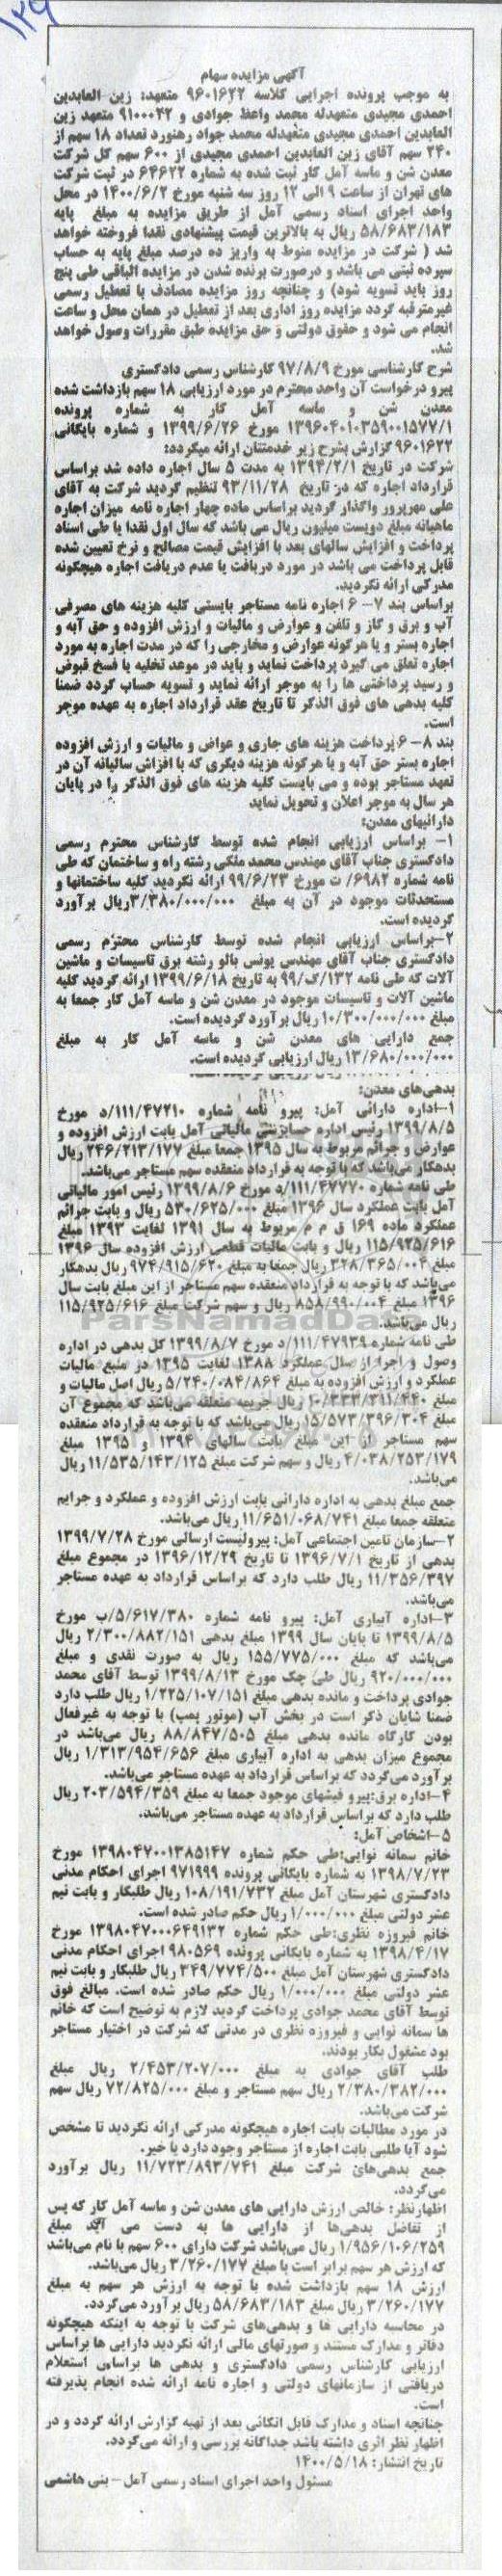 ۱۲۹
آگهی مزایده سهام
به موجب پرونده اجرایی کلاسه ۹۶۰۱۶۲۲ متعهد: زین العابدین
احمدی مجیدی متعهدله محمد واعظ جوادی و ۹۱۰۰۰۴۲ متعهد زین
العابدین احمدی مجیدی متعهدله محمد جواد رهنورد تعداد ۱۸ سهم از
۲۴۰ سهم آقای زین العابدین احمدی مجیدی از ۶۰۰ سهم کل شرکت
معدن شن و ماسه آمل کار ثبت شده به شماره ۶۴۶۲۲ در ثبت شرکت
های تهران از ساعت ۹ الی ۱۲ روز سه شنبه مورخ ۱۴۰۰/۶/۲ در محل
واحد اجرای اسناد رسمی آمل از طریق مزایده به مبلغ پایه
۵۸/۶۸۳/۱۸۳ ریال به بالاترین قیمت پیشنهادی نقدا فروخته خواهد
شد ( شرکت در مزایده منوط به واریز ده درصد مبلغ پایه به حساب
سپرده ثبتی می باشد و درصورت برنده شدن در مزایده الباقی طی پنج
روز باید تسویه شود) و چنانچه روز مزایده مصادف با تعطیل رسمی
غیرمترقبه گردد مزایده روز اداری بعد از تعطیل در همان محل و ساعت
انجام می شود و حقوق دولتی و حق مزایده طبق مقررات وصول خواهد
شد.
شرح کارشناسی مورخ ۹۷/۸/۹ کارشناس رسمی دادگستری
پیرو درخواست آن واحد محترم در مورد ارزیابی ۱۸ سهم بازداشت شده
معدن شن و ماسه آمل کار به شماره پرونده
۱۳۹۶۰۴۰۱۰۳۵۹۰۰۱۵۷۷/۱ مورخ ۱۳۹۹/۶/۲۶ و شماره بایگانی
۹۶۰۱۶۲۲ گزارش بشرح زیر خدمتتان ارائه میگردد:
شرکت در تاریخ ۱۳۹۴/۲/۱ به مدت ۵ سال اجاره داده شد براساس
قرارداد اجاره که در تاریخ ۹۳/۱۱/۲۸ تنظیم گردید شرکت به آقای
علی مهرپرور واگذار گردید براساس ماده چهار اجاره نامه میزان اجاره
ماهیانه مبلغ دویست میلیون ریال می باشد که سال اول نقدا یا طی اسناد
پرداخت و افزایش سالهای بعد با افزایش قیمت مصالح و نرخ تعیین شده
قابل پرداخت می باشد در مورد دریافت یا عدم دریافت اجاره هیچگونه
مدرکی ارائه نگردید.
براساس بند ۷-۶ اجاره نامه مستاجر بایستی کلیه هزینه های مصرفی
آب و برق و گاز و تلفن و عوارض و مالیات و ارزش افزوده و حق آبه و
اجاره بستر و یا هرگونه عوارض و مخارجی را که در مدت اجاره به مورد
اجاره تعلق می گیرد پرداخت نماید و باید در موعد تخلیه یا فسخ قبوض
و رسید پرداختی ها را به موجر ارائه نماید و تسویه حساب گردد ضمنا
کلیه بدهی های فوق الذکر تا تاریخ عقد قرارداد اجاره به عهده موجر
است.
بند ۸-۶ پرداخت هزینه های جاری و عواض و مالیات و ارزش افزوده
اجاره بستر حق آبه و یا هرگونه هزینه دیگری که با افزاش سالیانه آن در
تعهد مستاجر بوده و می بایست کلیه هزینه های فوق الذکر را در پایان
هر سال به موجر اعلان و تحویل نماید
دارائیهای معدن:
۱- براساس ارزیابی انجام شده توسط کارشناس محترم رسمی
دادگستری جناب آقای مهندس محمد ملکی رشته راه و ساختمان که طی
نامه شماره ۶۹۸۲/ ت مورخ ۹۹/۶/۲۳ ارائه نگردید کلیه ساختمانها و
مستحدثات موجود در آن به مبلغ ۳/۳۸۰/۰۰۰/۰۰۰ ریال برآورد
گردیده است.
۲-براساس ارزیابی انجام شده توسط کارشناس محترم رسمی
دادگستری جناب آقای مهندس یونس بالو رشته برق تاسیسات و ماشین
آلات که طی نامه ۱۳۲/ک/۹۹ به تاریخ ۱۳۹۹/۶/۱۸ ارائه گردید کلیه
ماشین آلات و تاسیسات موجود در معدن شن و ماسه آمل کار جمعا به
مبلغ ۱۰/۳۰۰/۰۰۰/۰۰۰ ریال برآورد گردیده است.
جمع دارایی های معدن شن و ماسه آمل کار به مبلغ
۱۳/۶۸۰/۰۰۰/۰۰۰ ریال ارزیابی گردیده است.
بدهی‌های معدن:
۱-اداره دارائی آمل: پیرو نامه شماره ۱۱۱/۴۷۲۱۰/د مورخ
۱۳۹۹/۸/۵ رئیس اداره حسابرسی مالیاتی آمل بابت ارزش افزوده و
عوارض و جرائم مربوط به سال ۱۳۹۵ جمعا مبلغ ۲۴۶/۲۱۳/۱۷۷ ریال
بدهکار می‌باشد که با توجه به قرارداد منعقده سهم مستاجر می‌باشد.
طی نامه شماره ۱۱۱/۴۷۷۷۰/د مورخ ۱۳۹۹/۸/۶ رئیس امور مالیاتی
آمل بابت عملکرد سال ۱۳۹۶ مبلغ ۵۳۰/۶۲۵/۰۰۰ ریال و بابت جرائم
عملکرد ماده ۱۶۹ ق م م مربوط به سال ۱۳۹۱ لغایت ۱۳۹۳ مبلغ
۱۱۵/۹۲۵/۶۱۶ ریال و بابت مالیات قطعی ارزش افزوده سال ۱۳۹۶
مبلغ ۳۲۸/۳۶۵/۰۰۴ ریال جمعا به مبلغ ۹۷۴/۹۱۵/۶۲۰ ریال بدهکار
می‌باشد که با توجه به قرارداد منعقده سهم مستاجر از این مبلغ بابت سال
۱۳۹۶ مبلغ ۸۵۸/۹۹۰/۰۰۴ ریال و سهم شرکت مبلغ ۱۱۵/۹۲۵/۶۱۶
ریال می‌باشد.
ParsNamadData
طی نامه شماره ۱۱۱/۴۷۹۳۹/د مورخ ۱۳۹۹/۸/۷ کل بدهی در اداره
وصول و اجرا از سال عملکرد ۱۳۸۸ لغایت ۱۳۹۵ در منبع مالیات
عملکرد و ارزش افزوده به مبلغ ۵/۲۴۰/۰۸۴/۸۶۴ ریال اصل مالیات و
مبلغ ۱۰/۳۳۳/۳۱۱/۴۴۰ ریال جریمه متعلقه می‌باشد که مجموع آن
مبلغ ۱۵/۵۷۳/۳۹۶/۳۰۴ ریال می‌باشد که با توجه به قرارداد منعقده
سهم مستاجر از این مبلغ بابت سالهای ۱۳۹۴ و ۱۳۹۵ مبلغ
۴/۰۳۸/۲۵۳/۱۷۹ ریال و سهم شرکت مبلغ ۱۱/۵۳۵/۱۴۳/۱۲۵ ریال
می‌باشد.
جمع مبلغ بدهی به اداره دارائی بابت ارزش افزوده و عملکرد و جرایم
متعلقه جمعا مبلغ ۱۱/۶۵۱/۰۶۸/۷۴۱ ریال می‌باشد.
۲-سازمان تامین اجتماعی آمل: پیرولیست ارسالی مورخ ۱۳۹۹/۷/۲۸
بدهی از تاریخ ۱۳۹۶/۷/۱ تا تاریخ ۱۳۹۶/۱۲/۲۹ در مجموع مبلغ
۱۱/۳۵۶/۳۹۷ ریال طلب دارد که براساس قرارداد به عهده مستاجر
می‌باشد.
۳-اداره آبیاری آمل: پیرو نامه شماره ۵/۶۱۷/۳۸۰/ب مورخ
۱۳۹۹/۸/۵ تا پایان سال ۱۳۹۹ مبلغ بدهی ۲/۳۰۰/۸۸۲/۱۵۱ ریال
می‌باشد که مبلغ ۱۵۵/۷۷۵/۰۰۰ ریال به صورت نقدی و مبلغ
۹۲۰/۰۰۰/۰۰۰ ریال طی چک مورخ ۱۳۹۹/۸/۱۳ توسط آقای محمد
جوادی پرداخت و مانده بدهی مبلغ ۱/۲۲۵/۱۰۷/۱۵۱ ریال طلب دارد
ضمنا شایان ذکر است در بخش آب (موتور پمپ) با توجه به غیرفعال
بودن کارگاه مانده بدهی مبلغ ۸۸/۸۴۷/۵۰۵ ریال می‌باشد در
مجموع میزان بدهی به اداره آبیاری مبلغ ۱/۳۱۳/۹۵۴/۶۵۶ ریال
برآورد می‌گردد که براساس قرارداد به عهده مستاجر می‌باشد.
۴-اداره برق:پیرو فیشهای موجود جمعا به مبلغ ۲۰۳/۵۹۴/۳۵۹ ریال
طلب دارد که براساس قرارداد به عهده مستاجر می‌باشد.
۵-اشخاص آمل:
خانم سمانه نوایی:طی حکم شماره ۱۳۹۸۰۴۷۰۰۱۳۸۵۱۴۷ مورخ
۱۳۹۸/۷/۲۳ به شماره بایگانی پرونده ۹۷۱۹۹۹ اجرای احکام مدنی
دادگستری شهرستان آمل مبلغ ۱۰۸/۱۹۱/۷۳۲ ریال طلبکار و بابت نیم
عشر دولتی مبلغ ۱/۰۰۰/۰۰۰ ریال حکم صادر شده است.
خانم فیروزه نظری:طی حکم شماره ۱۳۹۸۰۴۷۰۰۰۶۴۹۱۳۲ مورخ
۱۳۹۸/۴/۱۷ به شماره بایگانی پرونده ۹۸۰۵۶۹ اجرای احکام مدنی
دادگستری شهرستان آمل مبلغ ۳۴۹/۷۷۴/۵۰۰ ریال طلبکار و بابت نیم
عشر دولتی مبلغ ۱/۰۰۰/۰۰۰ ریال حکم صادر شده است. مبالغ فوق
توسط آقای محمد جوادی پرداخت گردید لازم به توضیح است که خانم
ها سمانه نوایی و فیروزه نظری در مدتی که شرکت در اختیار مستاجر
بود مشغول بکار بودند.
طلب آقای جوادی به مبلغ ۲/۴۵۳/۲۰۷/۰۰۰ ریال مبلغ
۲/۳۸۰/۳۸۲/۰۰۰ ریال سهم مستاجر و مبلغ ۷۲/۸۲۵/۰۰۰ ریال سهم
شرکت می‌باشد.
در مورد مطالبات بابت اجاره هیچگونه مدرکی ارائه نگردید تا مشخص
شود آیا طلبی بابت اجاره از مستاجر وجود دارد یا خیر.
جمع بدهی‌های شرکت مبلغ ۱۱/۷۲۳/۸۹۳/۷۴۱ ریال برآورد
می‌گردد.
اظهارنظر: خالص ارزش دارایی های معدن شن و ماسه آمل کار که پس
از تفاضل بدهی‌ها از دارایی ها به دست می آید مبلغ
۱/۹۵۶/۱۰۶/۲۵۹ ریال می‌باشد شرکت دارای ۶۰۰ سهم با نام می‌باشد
که ارزش هر سهم برابر است با مبلغ ۳/۲۶۰/۱۷۷ ریال می‌باشد.
ارزش ۱۸ سهم بازداشت شده با توجه به ارزش هر سهم به مبلغ
۳/۲۶۰/۱۷۷ ریال مبلغ ۵۸/۶۸۳/۱۸۳ ریال برآورد می‌گردد.
در محاسبه دارایی ها و بدهی‌های شرکت با توجه به اینکه هیچگونه
دفاتر و مدارک مستند و صورتهای مالی ارائه نگردید دارایی ها براساس
ارزیابی کارشناس رسمی دادگستری و بدهی ها براساس استعلام
دریافتی از سازمانهای دولتی و اجاره نامه ارائه شده انجام پذیرفته
است.
چنانچه اسناد و مدارک قابل اتکائی بعد از تهیه گزارش ارائه گردد و در
اظهار نظر اثری داشته باشد جداگانه بررسی و ارائه می‌گردد.
تاریخ انتشار: ۱۴۰۰/۵/۱۸
مسئول واحد اجرای اسناد رسمی آمل - بنی هاشمی